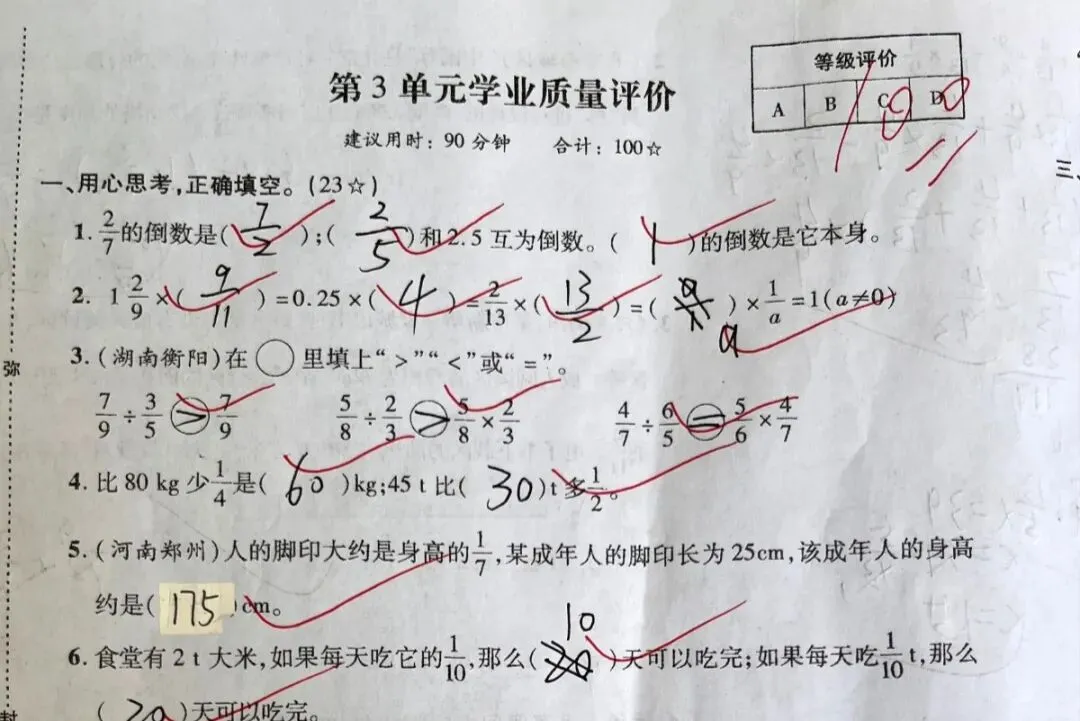 第 3 单元学业质量评价
等级评价
A B C D
100
建议用时：90 分钟 合计：100☆
一、用心思考，正确填空。(23☆)
1. 2/7 的倒数是( 7/2 )；( 2/5 )和 2.5 互为倒数。( 1 )的倒数是它本身。
2. 1 2/9 ×( 9/11 )=0.25×( 4 )= 2/13 ×( 13/2 )=( a )× 1/a =1(a≠0)
3. (湖南衡阳)在 ○ 里填上“>”“<”或“=”。
7/9 ÷ 3/5 > 7/9 5/8 ÷ 2/3 > 5/8 × 2/3 4/7 ÷ 6/5 = 5/6 × 4/7
4. 比 80 kg 少 1/4 是( 60 )kg；45 t 比( 30 )t 多 1/2 。
5. (河南郑州)人的脚印大约是身高的 1/7 ，某成年人的脚印长为 25cm，该成年人的身高
约是( 175 )cm。
10
6. 食堂有 2 t 大米，如果每天吃它的 1/10 ，那么( )天可以吃完；如果每天吃 1/10 t，那么
( 20 )天可以吃完。
弥
封
三、